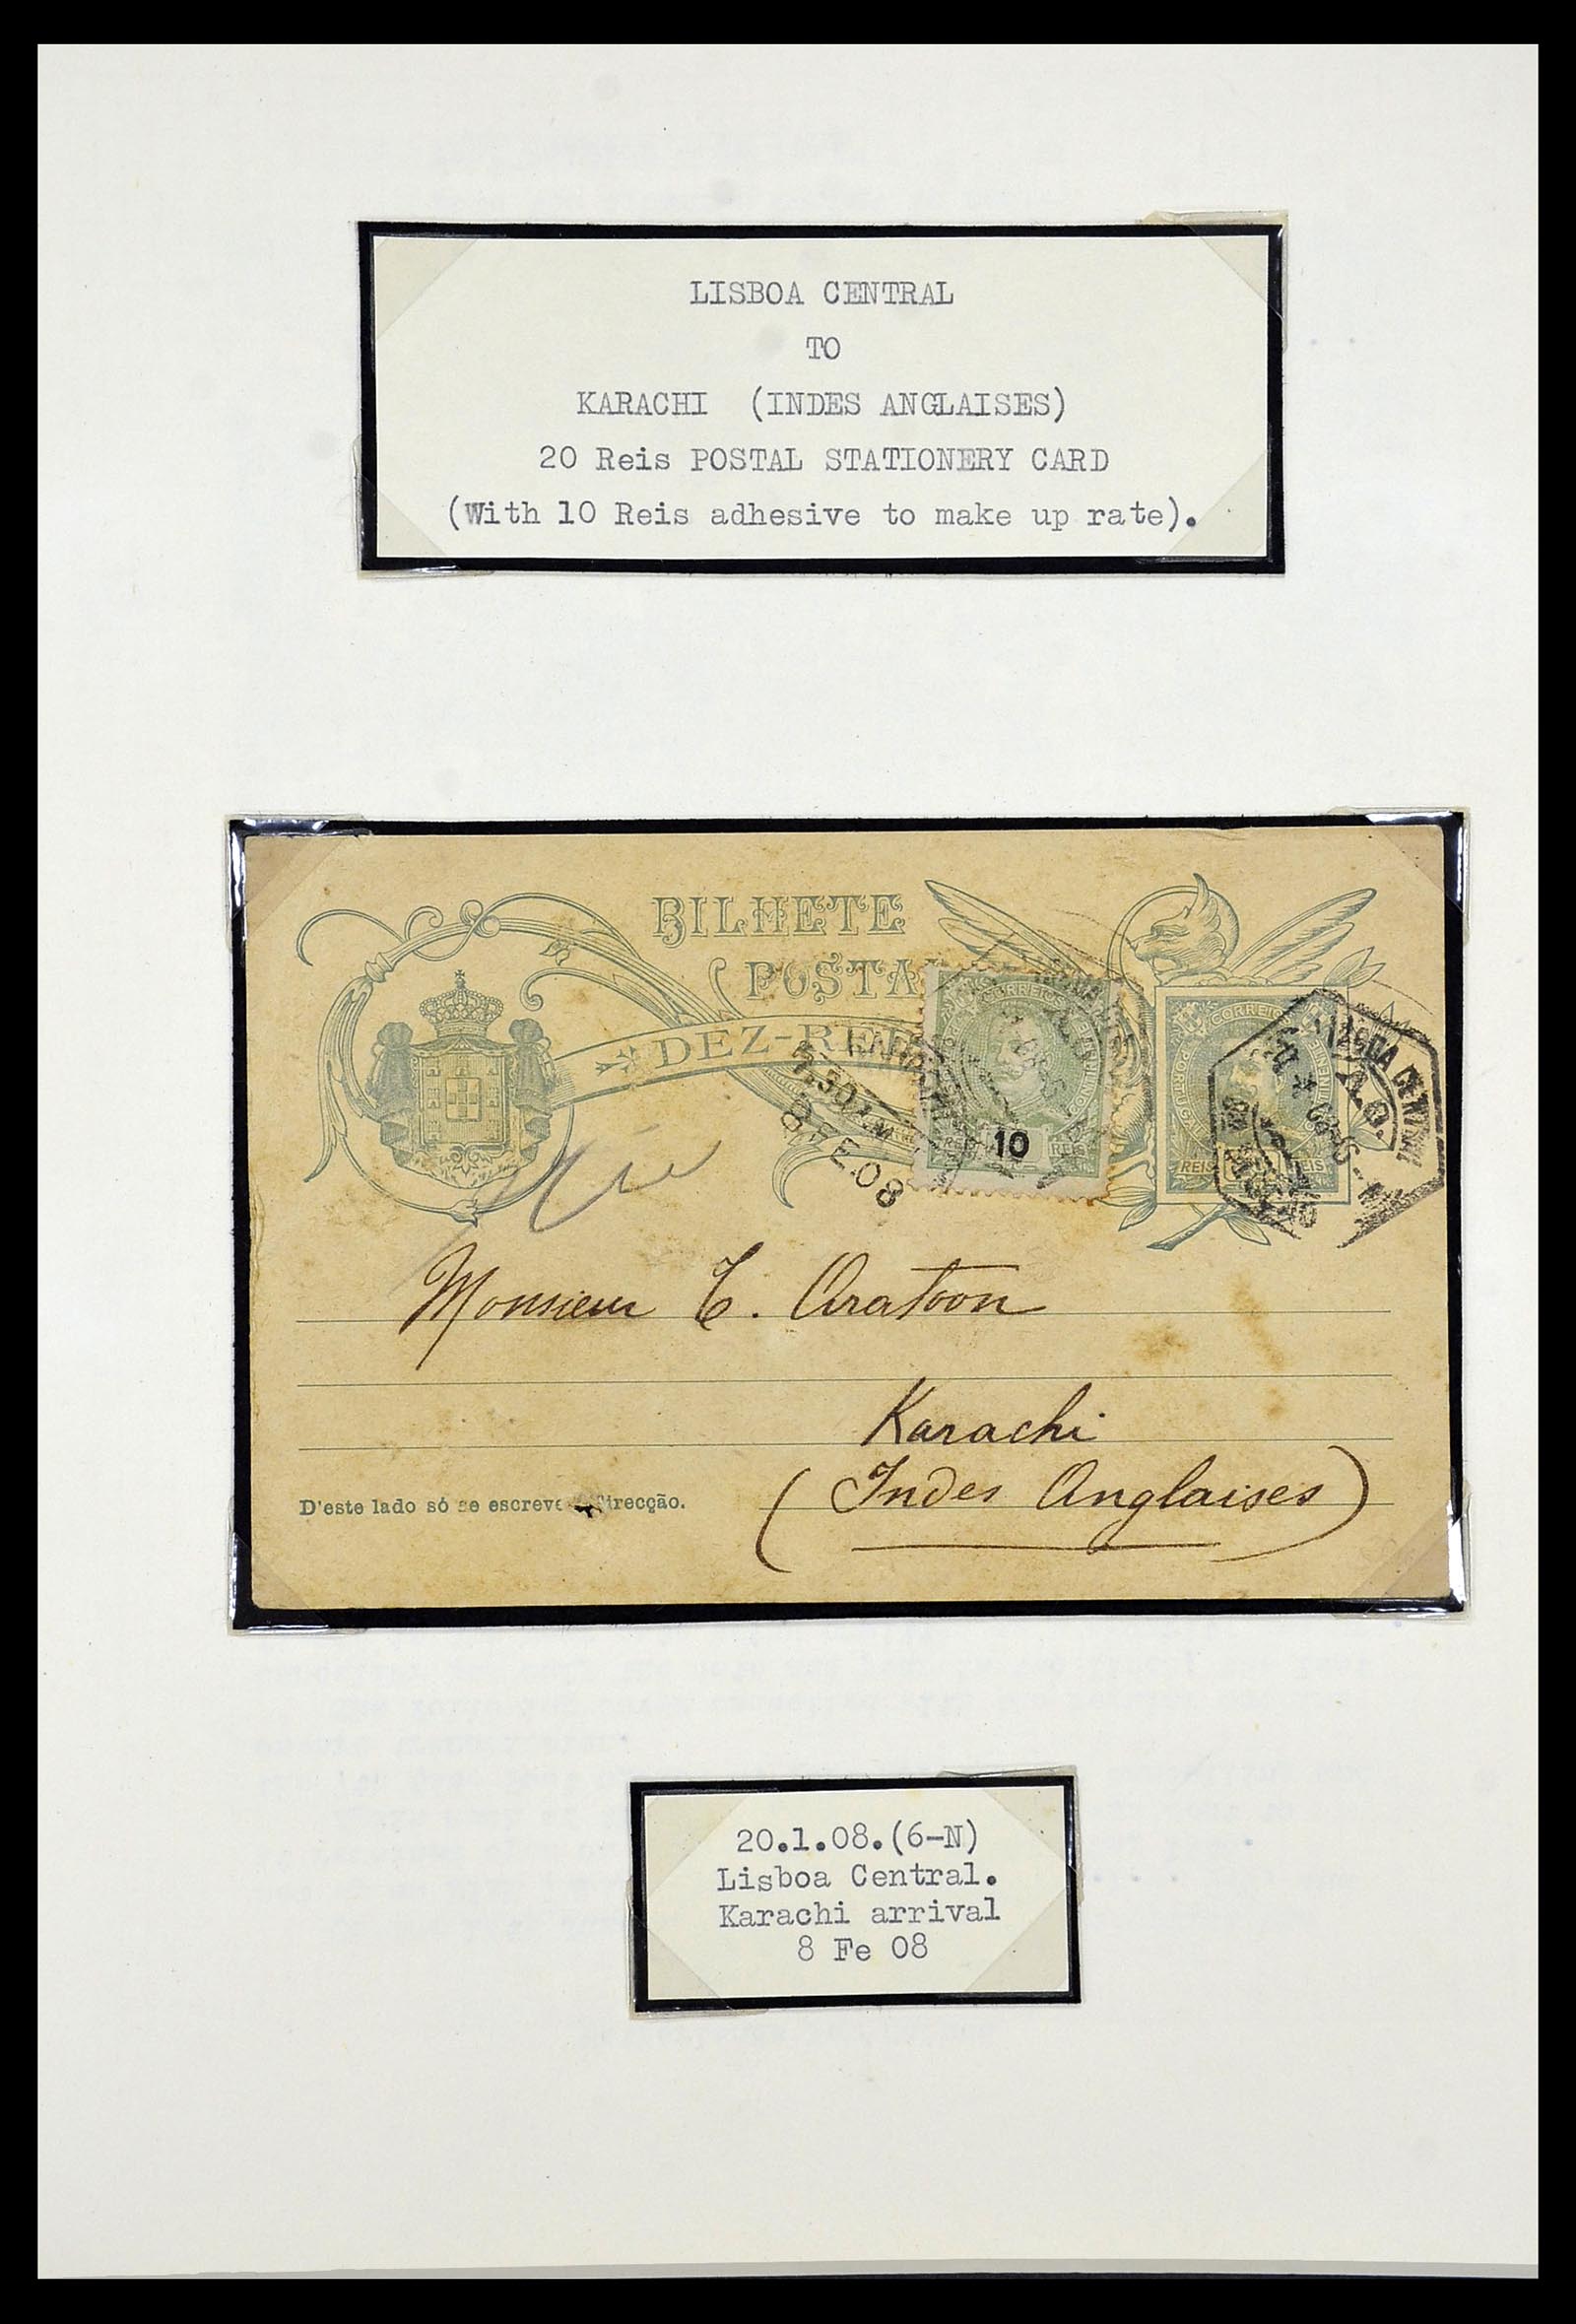 LISBOA CENTRAL
TO
KARACHI (INDES ANGLAISES)
20 Reis POSTAL STATIONERY CARD
(With 10 Reis adhesive to make up rate).
BILHETE
POSTA
DEZ-REI
CORREIOS
10
REIS
CORREIOS
REIS
LISBOA CENTRAL
7.30
8 FE 08
Monsieur C. Aratoon
Karachi
D'este lado só se escreve direcção.
(Indes Anglaises)
20.1.08.(6-N)
Lisboa Central.
Karachi arrival
8 Fe 08